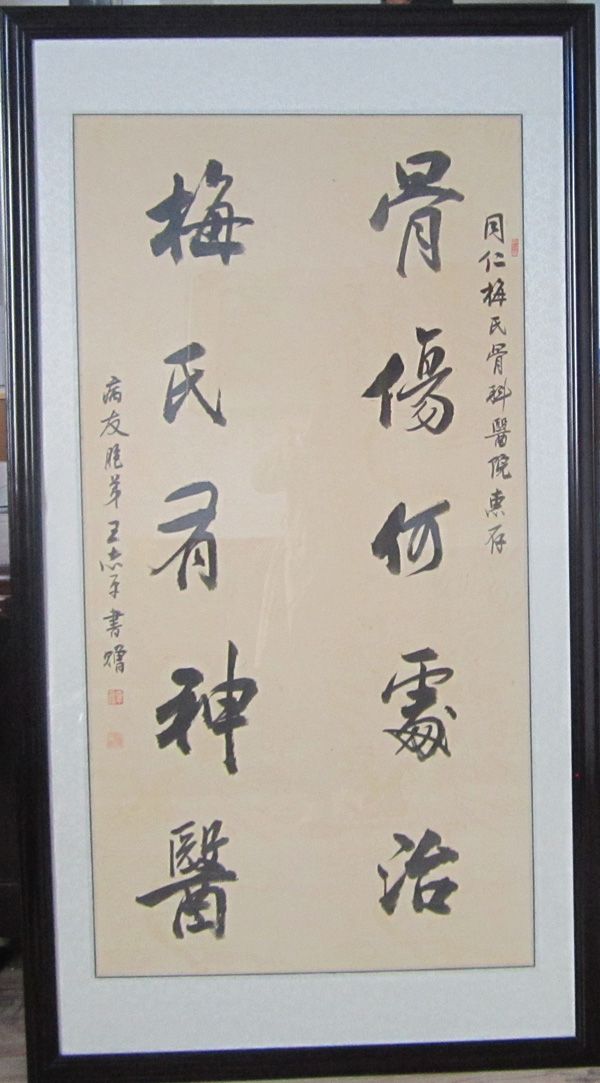 同仁梅氏骨科醫院惠存
骨傷何處治
梅氏有神醫
病友胞弟王志平書贈